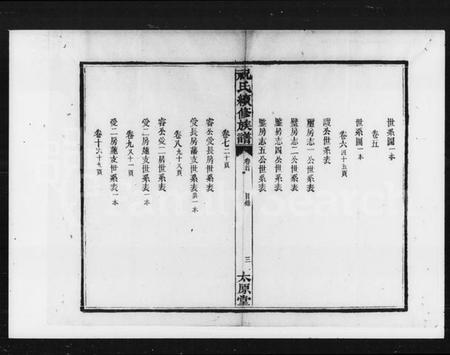 世系圖一本
卷五
世系圖一本
卷六四十五頁
諡公世系表
璽房志一公世系表
璧房志二公世系表
鑒房志四公世系表
鑒房志五公世系表
祝氏續修族譜
卷首
目錄
三
太原堂
卷七二十頁
睿公受長房世系表
受長房藩支世系表共一本
卷八九十八頁
睿公受二房世系表
受二房藩支世系表
卷九又十一頁
受二房藩支世系表一本
卷十六十九頁